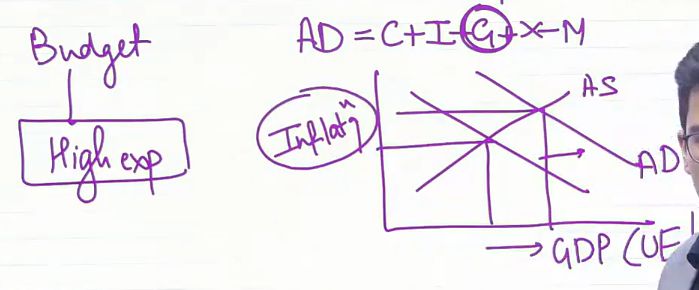 Budget
High exp
AD = C+I+G+X-M
Inflatⁿ
AS
AD
→ GDP (UE